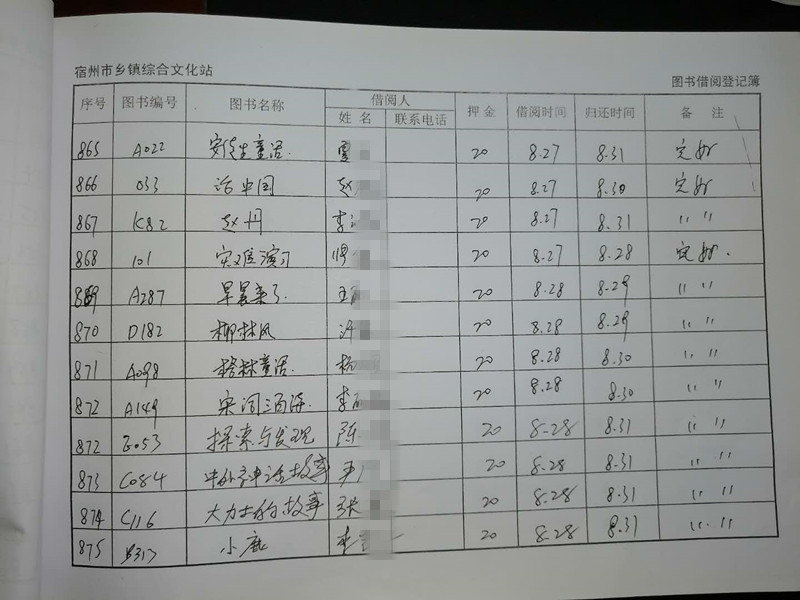 宿州市乡镇综合文化站 图书借阅登记簿
序号 图书编号 图书名称 借阅人 押金 借阅时间 归还时间 备注
姓名 联系电话
865 A022 安徒生童话. 20 8.27 8.31 完好
866 033 话中国 赵 20 8.27 8.30 完好
867 K82 赵丹 李 20 8.27 8.31 〃 〃
868 101 灾难演习 20 8.27 8.28 完好.
869 A287 早晨来了. 王 20 8.28 8.29 〃 〃
870 D182 柳林风 许 20 8.28 8.29 〃 〃
871 A098 格林童话. 杨 20 8.28 8.30 〃 〃
872 A149 宋词三百. 李 20 8.28 8.30 〃 〃
872 053 探索与发现 陈 20 8.28 8.31 〃 〃
873 C084 中外神话故事 20 8.28 8.31 〃 〃
874 C116 大力士的故事 张 20 8.28 8.31 〃 〃
875 B317 小鹿 李 20 8.28 8.31 〃 〃